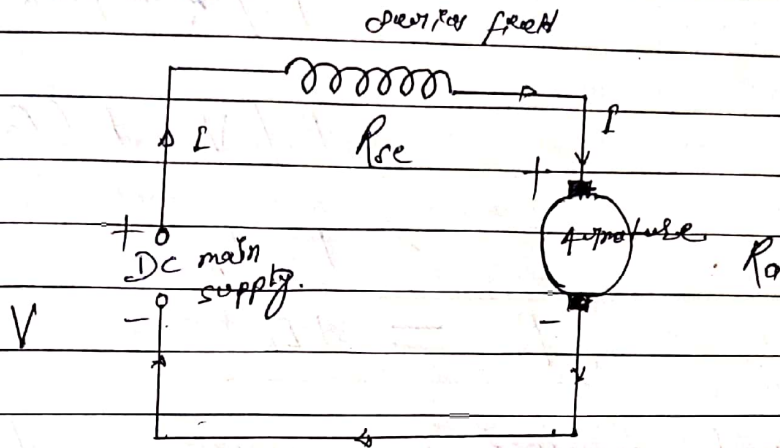 series field
I
Rse
I
+
+
DC main
supply.
Armature
Ra
V
-
-